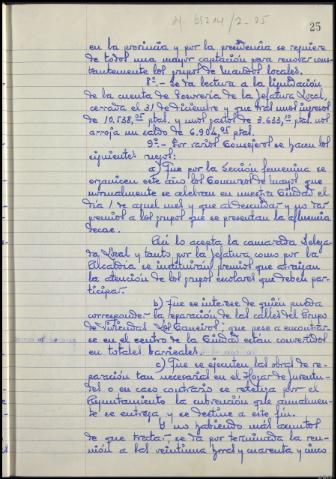 25
en la provincia y por la presidencia se requiere
de todos una mayor captación para renovar cons-
tantemente los grupos de mandos locales.
8º.- Se da lectura a la liquidación
de la cuenta de Tesorería de la Jefatura Local,
cerrada el 31 de diciembre y que tras unos ingresos
de 10.538, ptas. y unos gastos de 3.633, ptas. nos
arroja un saldo de 6.904, ptas.
9º.- Por varios Consejeros se hacen los
siguientes ruegos:
a) Que por la Sección femenina se
organicen este año los Concursos de mayos que
normalmente se celebran en nuestra Ciudad el
día 1 de aquel mes y que al descuidar y no dar
premios a los grupos que se presentan la afluencia
decae.
Así lo acepta la camarada Delega-
da Local y tanto por la Jefatura como por la
Alcaldía se instituirán premios que atraigan
la atención de los grupos escolares que deben par-
ticipar.
b) Que se interese de quien pueda
corresponder la reparación de las calles del Grupo
de Viviendas "Los Caneiros" que pese a encontrar-
se en el centro de la Ciudad están convertidos
en totales barrizales.
c) Que se ejecuten las obras de re-
paración tan necesarias en el Hogar de juventu-
des o en caso contrario se retenga por el
Ayuntamiento la subvención que anualmen-
te se entrega y se destine a este fin.
Y no habiendo más asuntos
de que tratar, se da por terminada la reu-
nión a las veintiuna horas y cuarenta y cinco